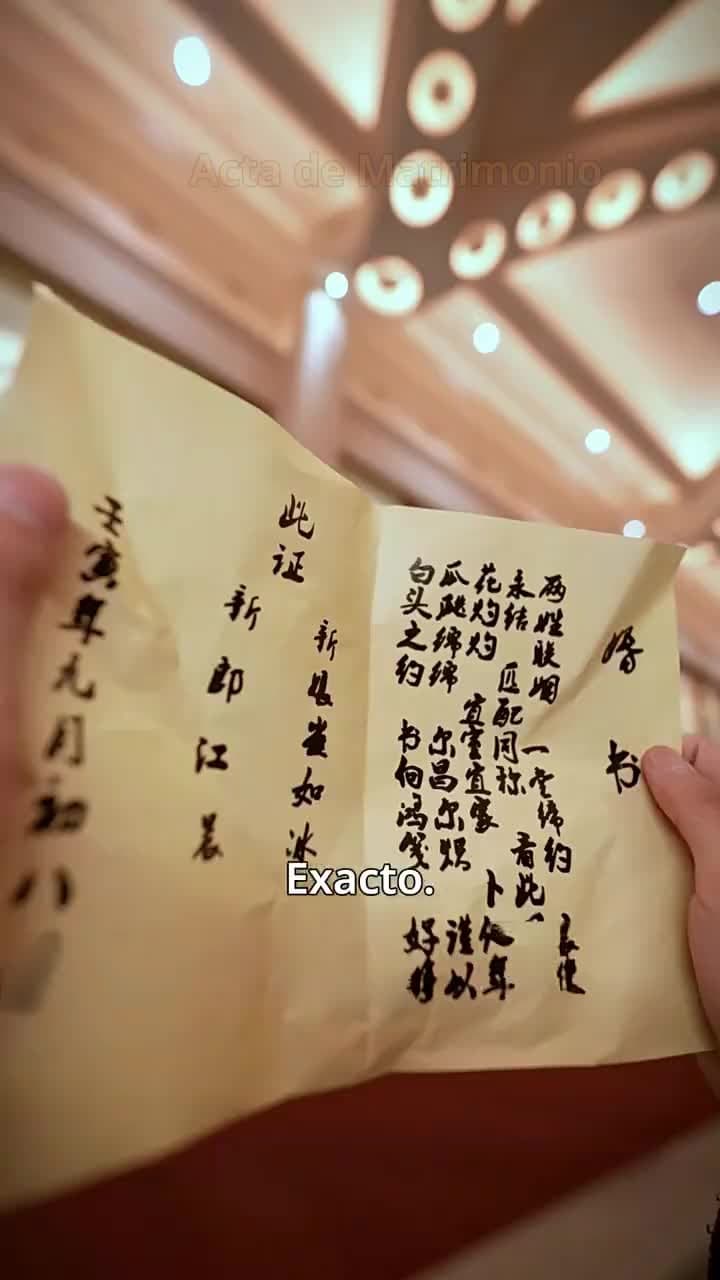 Acta de Matrimonio
婚书
两姓联姻 一堂缔约 良缘
永结 匹配同称 看此
花灼灼 宜室宜家 卜他年
瓜瓞绵绵 尔昌尔炽 谨以
白头之约 书向鸿笺 好将
此证
新娘 如冰
新郎江晨
壬寅年元月初八
Exacto.